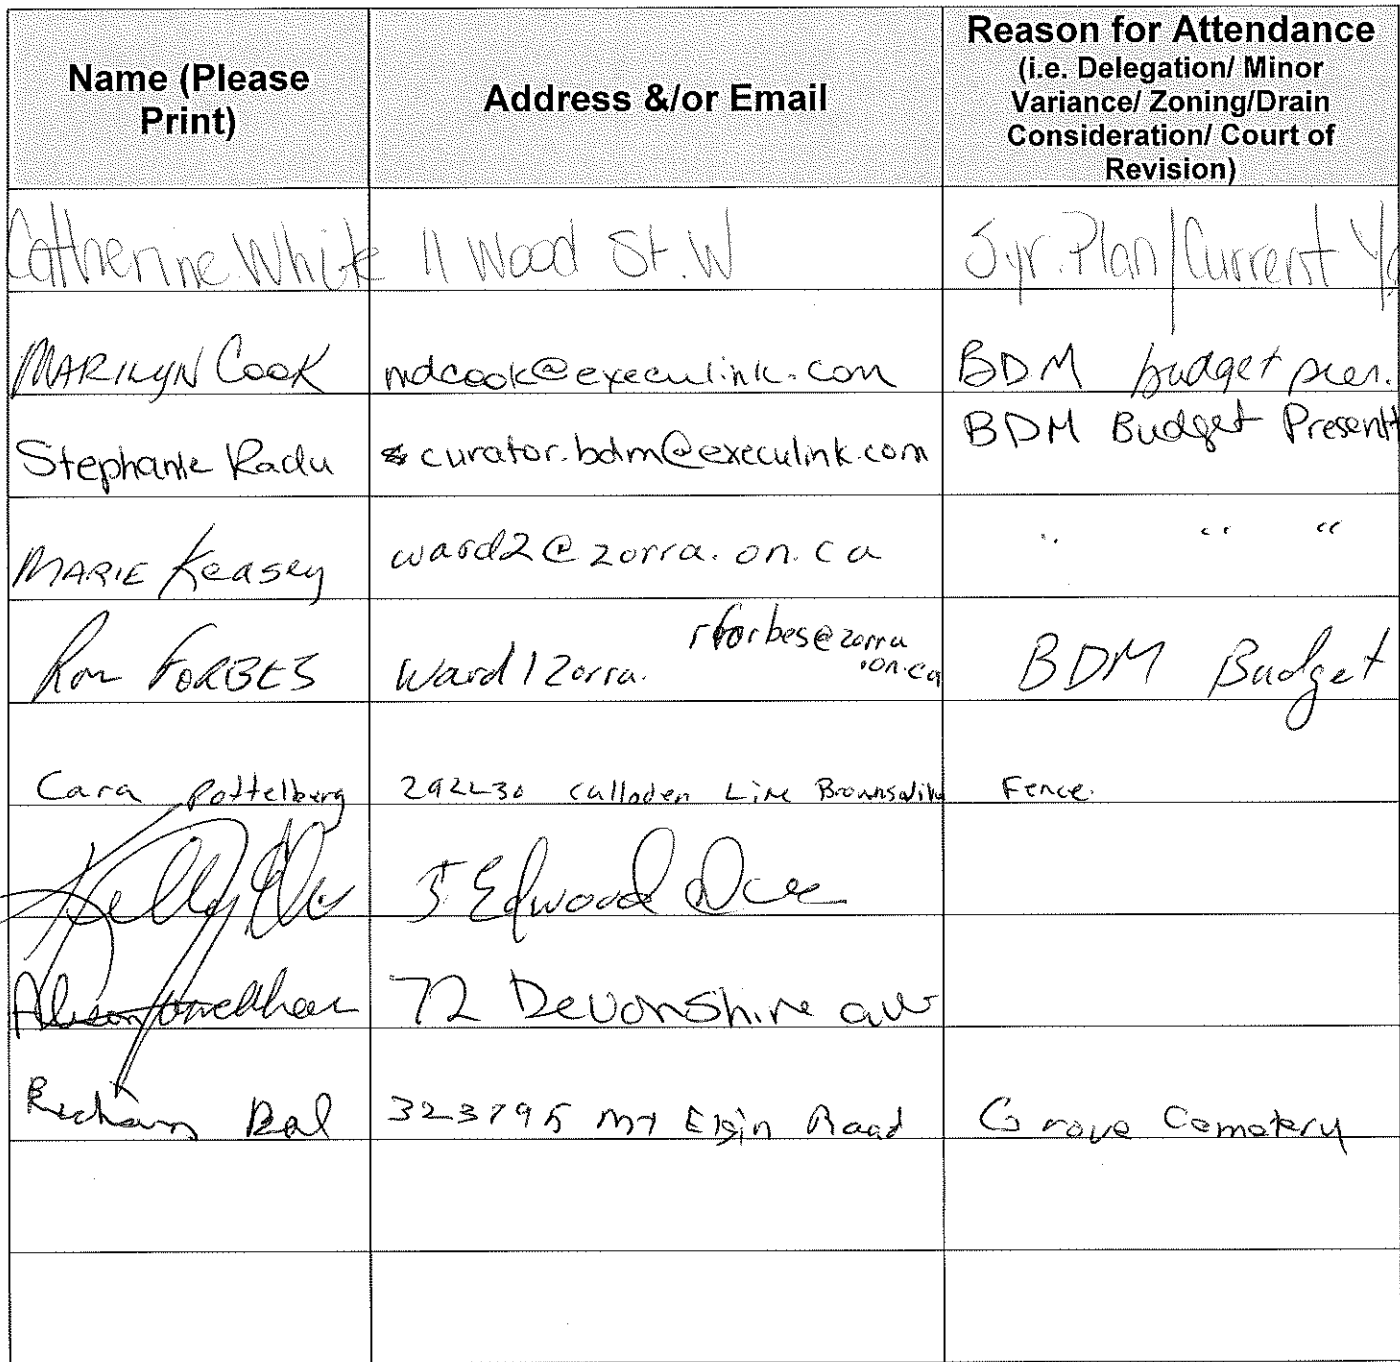 Name (Please
Print)
Address &/or Email
Reason for Attendance
(i.e. Delegation/ Minor
Variance/ Zoning/Drain
Consideration/ Court of
Revision)
Catherine White 11 Wood St. W 5yr. Plan/Current
MARILYN COOK mdcook@execulink.com BDM budget pres.
Stephanie Radu curator.bdm@execulink.com BDM Budget Present
MARIE Keasey ward2@zorra.on.ca " " "
Ron FORBES Ward 1 Zorra. rforbes@zorra
.on.ca
BDM Budget
Cara Pottelberg Culloden Line Brownsville Fence.
Kelly 5 Edwood
72 Devonshire ave
323795 Mt Elgin Road Grove Cemetery